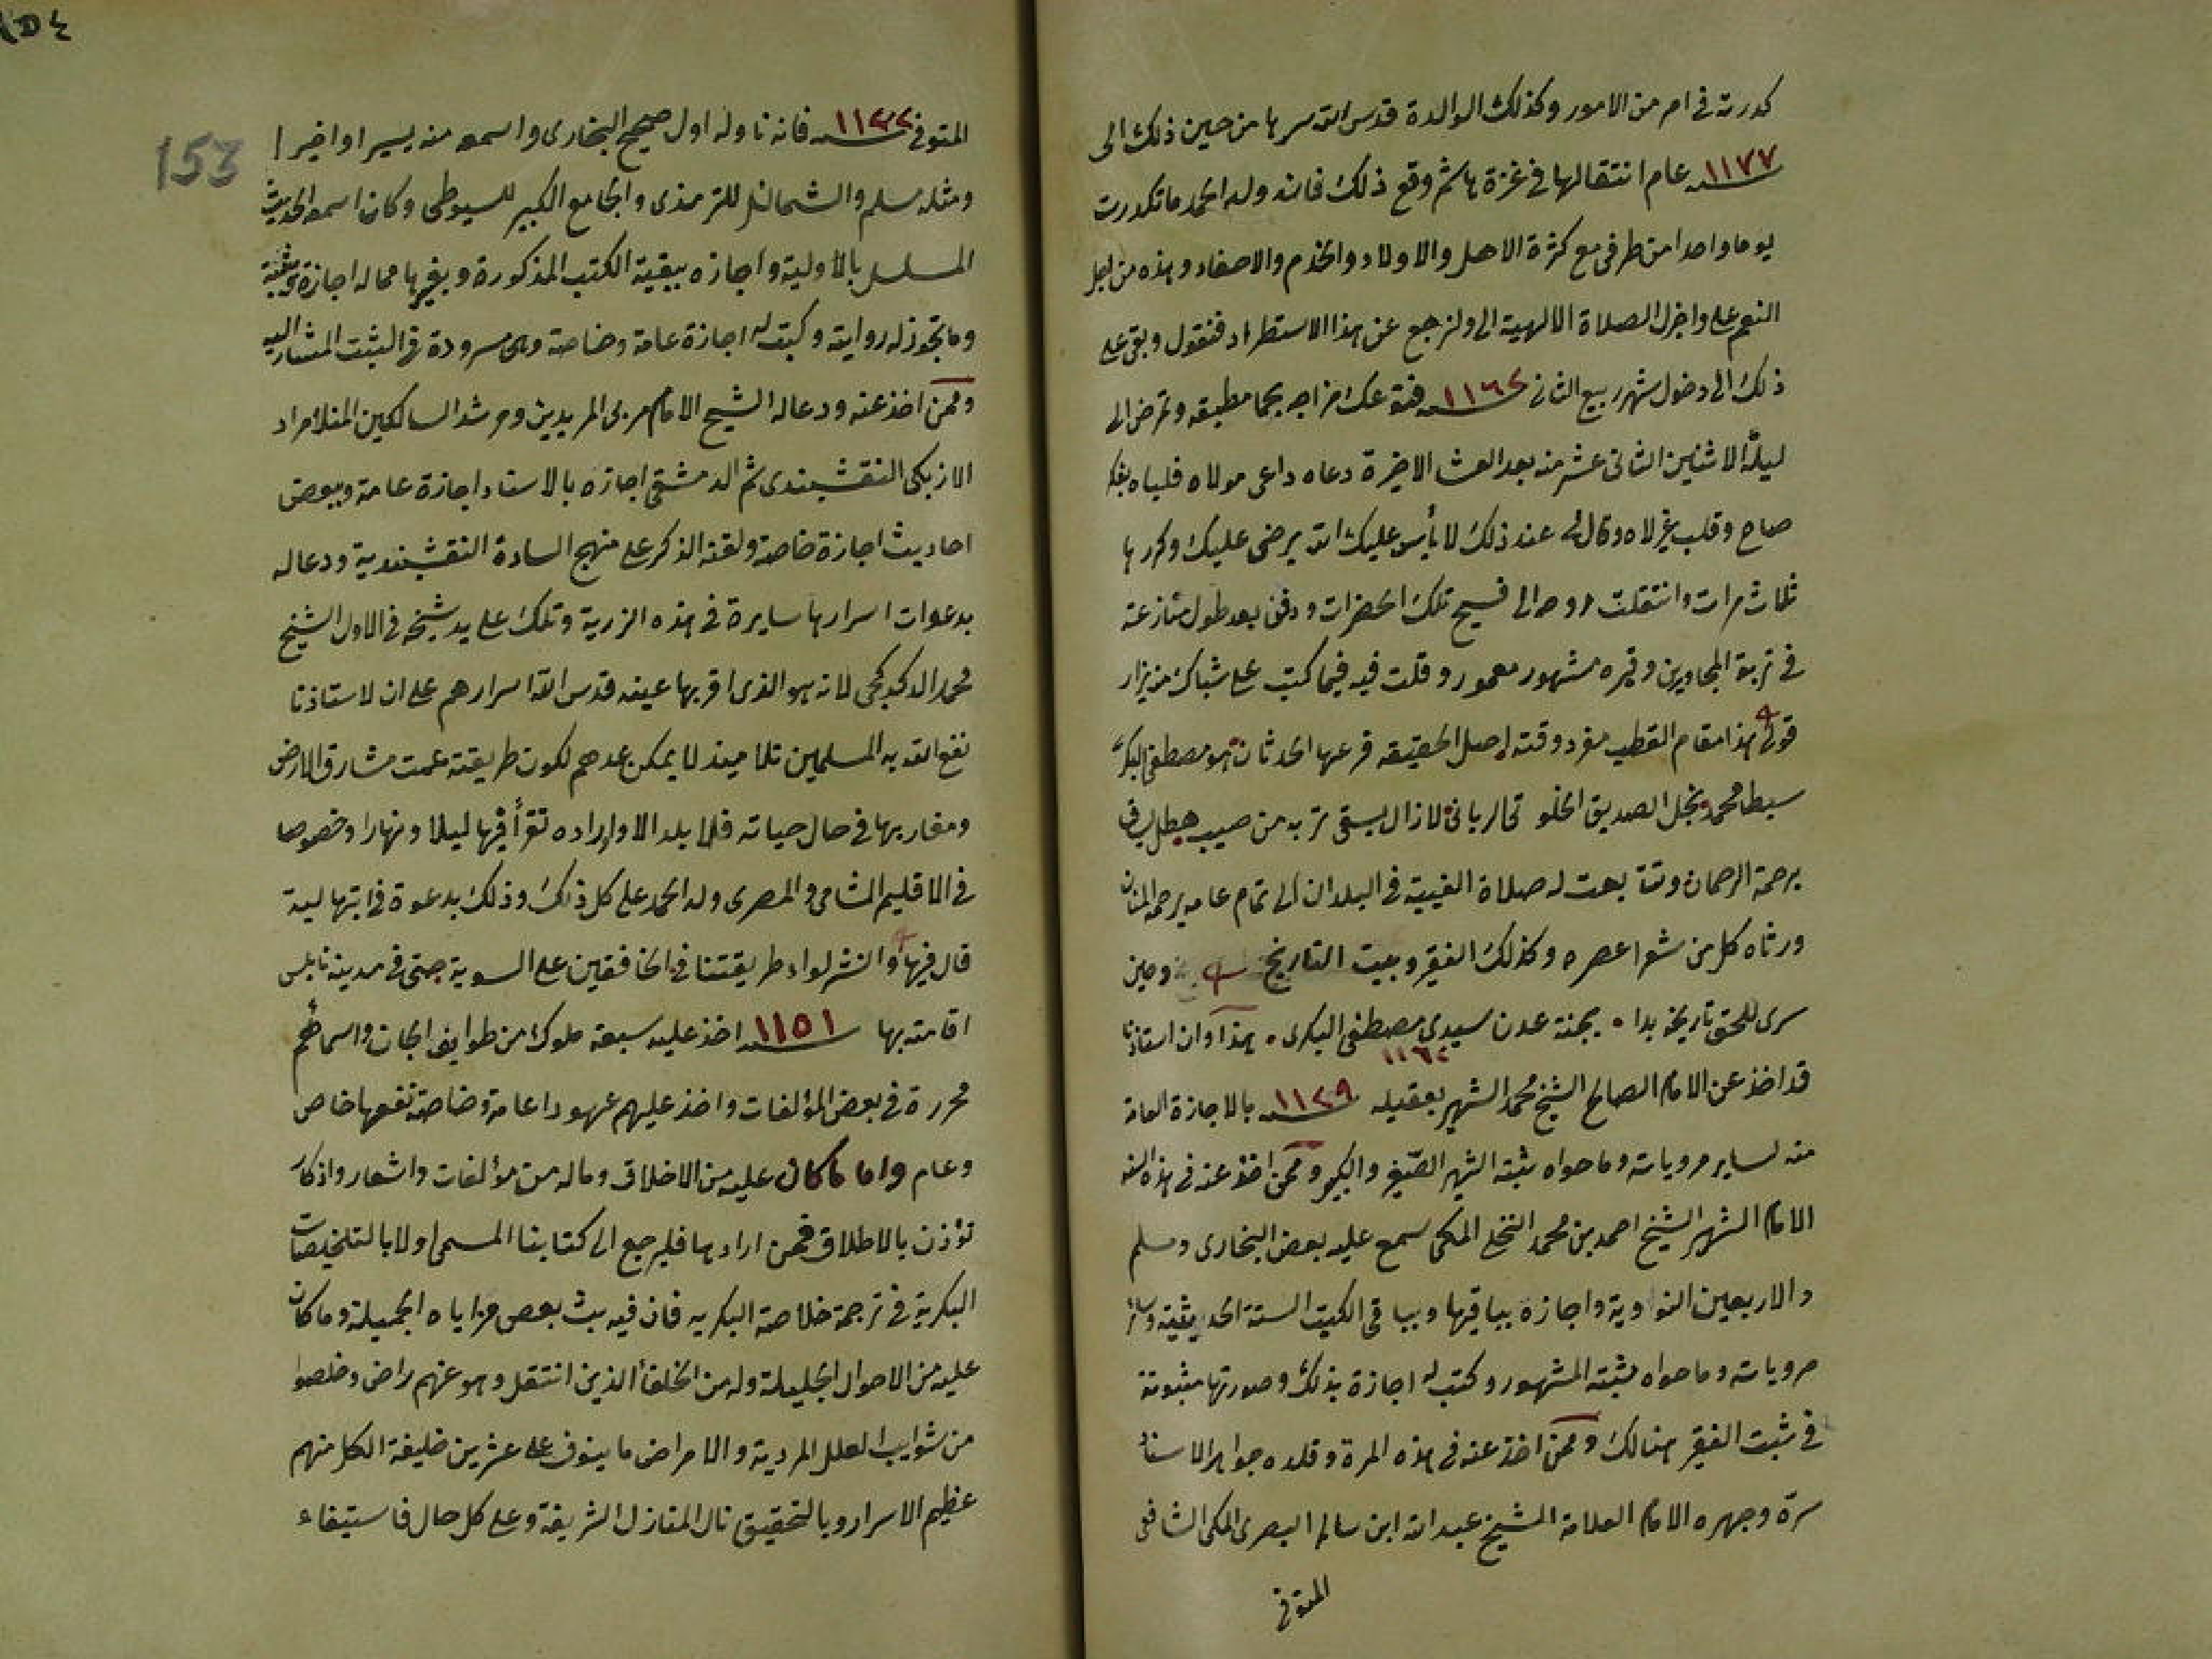 كدرته في امر من الامور وكذلك الوالدة قدس الله سرها من حين ذلك الى
١١٧٧ عام انتقالها في غزة هاشم وقع ذلك فانه وله الحمد ما تكدرت
يوما واحدا من طرفى مع كثرة الاهل والاولاد والخدم والاحفاد وهذه من اجل
النعم على واجزل الصلاة الالهية الى ولنرجع عن هذا الاستطراد فنقول وبقى على
ذلك الى دخول شهر ربيع الثانى ١١٦٢ فتوعك مزاجه بحما مطبقه وتمرض الى
ليلة الاثنين الثانى عشر منه بعد العشا الاخيرة دعاه داعى مولاه فلباه
صاح وقلب غير لاه وقال لى عند ذلك لا بأس عليك الله يرضى عليك وكررها
ثلاث مرات وانتقلت روحه الى فسيح تلك الحضرات ودفن بعد طول منازعة
في تربة المجاورين وقبره مشهور معمور وقلت فيه فيما كتب على شباك مزار
قولى هذا مقام القطب مفرد وقته اصل الحقيقه فرعها الحدثان هو مصطفى البكرى
سبط محمد نجل الصديق الخلوتى الربانى لا زال يسقى تربه من صيب هطل
برحمة الرحمان وتتابعت له صلاة الغيبة في البلدان الى تمام عامه يرحمه المنان
ورثاه كل من شعرا عصره وكذلك الفقير وبيت التاريخ وحين
سرى للحق تاريخه بدا ۰ بجنة عدن سيدى مصطفى البكرى ۰ هذا وان استاذنا
١١٦٢
قد اخذ عن الامام الصالح الشيخ محمد الشهير بعقيله ١١٢٩ بالاجازة العامة
منه لساير مروياته وما حواه ثبته الشهير الصغير والكبير وممن اخذ عنه في هذه
الامام الشهير الشيخ احمد بن محمد النخلى المكى سمع عليه بعض البخارى ومسلم
والاربعين النواوية واجازه بباقيها وبباقى الكتب الستة الحديثية
مروياته وما حواه ثبته المشهور وكتب له اجازة بذلك وصورتها مثبوتة
في ثبت الفقير هنالك وممن اخذ عنه في هذه المرة وقلده جواهر الاسناد
سرّه وجهره الامام العلامة الشيخ عبد الله ابن سالم البصرى المكى الشافعى
المتوفى
153
المتوفى فانه ناوله اول صحيح البخارى واسمعه منه يسيرا واخيرا
ومثله مسلم والشمائل للترمذى والجامع الكبير للسيوطى وكان اسمعه الحديث
المسلسل بالاولية واجازه ببقية الكتب المذكورة وبغيرها مما له اجازة
وما تجوز له روايته وكتب له اجازة عامة وخاصة وهى مسرودة في الثبت المشار اليه
وممن اخذ عنه ودعا له الشيخ الامام مربى المريدين ومرشد السالكين المنلا مراد
الازبكى النقشبندى ثم الدمشقى اجازه بالاسناد اجازة عامة وببعض
احاديث اجازة خاصة ولقنه الذكر على منهج السادة النقشبندية ودعا له
بدعوات اسرارها سايرة في هذه الزرية وتلك على يد شيخه في الاول الشيخ
محمد الدكدكجى لانه هو الذى اقر بها عينه قدس الله اسرارهم على ان لاستاذنا
نفع الله به المسلمين تلاميذ لا يمكن عدهم لكون طريقته عمت مشارق الارض
ومغاربها في حال حياته فلا بلد الا واوراده تقرأ فيها ليلا ونهارا وخصوصا
في الاقليم الشامى والمصرى وله الحمد على كل ذلك وذلك بدعوة في ابتهالية
قال فيها والنشر لواء طريقتنا في الخافقين على السوية حتى في مدينة نابلس
اقامته بها ١١٥١ اخذ عليه سبعة ملوك من طوايف الجان واسمائهم
محررة في بعض المؤلفات واخذ عليهم عهودا عامة وخاصة نفعها خاص
وعام واما ما كان عليه من الاخلاق وما له من مؤلفات واشعار واذكار
تؤذن بالاطلاق فمن ارادها فليرجع الى كتابنا المسمى اولا بالتلخيصات
البكرية في ترجمة خلاصة البكريه فان فيه بث بعض مزاياه الجميلة وما كان
عليه من الاحوال الجليلة وله من الخلفأ الذين انتقل وهو عنهم راض وخلصوا
من شوايب العلل المردية والامراض ما ينوف على عشرين خليفة الكل منهم
عظيم الاسرار وبالتحقيق نال المنازل الشريفة وعلى كل حال فاستيفاء